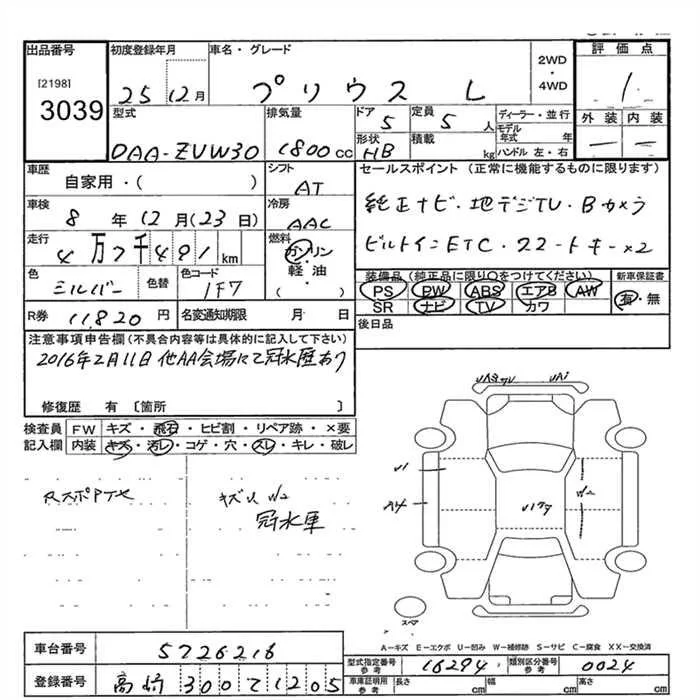 出品番号 初度登録年月 車名・グレード 評価点
[2198]
3039
25 12月 プリウス L 2WD・4WD 1
型式 排気量 ドア 定員 ディーラー・並行 外装 内装
DAA-ZVW30 1800cc 5 5人 モデル年式 年
形状 積載 ハンドル 左・右 — —
HB kg
車歴 シフト セールスポイント (正常に機能するものに限ります)
自家用・( ) AT
車検 冷房 純正ナビ・地デジTV・Bカメラ
8年12月(23日) AAC
走行 燃料 ビルトインETC・スマートキー×2
4万7千491km ガソリン・軽油 ( )
色 色替 色コード 装備品(純正品に限り○をつけてください) 新車保証書
シルバー 1F7 PS PW ABS エアB AW 有・無
SR ナビ TV カワ
R券 11,820円 名変通知期限 月 日 後日品
注意事項申告欄(不具合内容等は具体的に記入して下さい)
2016年2月11日他AA会場にて冠水歴あり
修復歴 有〔箇所 〕
検査員 FW キズ・飛石・ヒビ割・リペア跡・×要
記入欄 内装 キズ・汚レ・コゲ・穴・スレ・キレ・破レ
キズU W2
冠水車
A1
W2
スペア
A−キズ E−エクボ U−凹み W−補修跡 S−サビ C−腐食 XX−交換済
車台番号 5726216
型式指定番号 参考 16294 類別区分番号 参考 0024
登録番号 高崎 300 て 1205
車庫証明用 参考 長さ cm 幅 cm 高さ cm